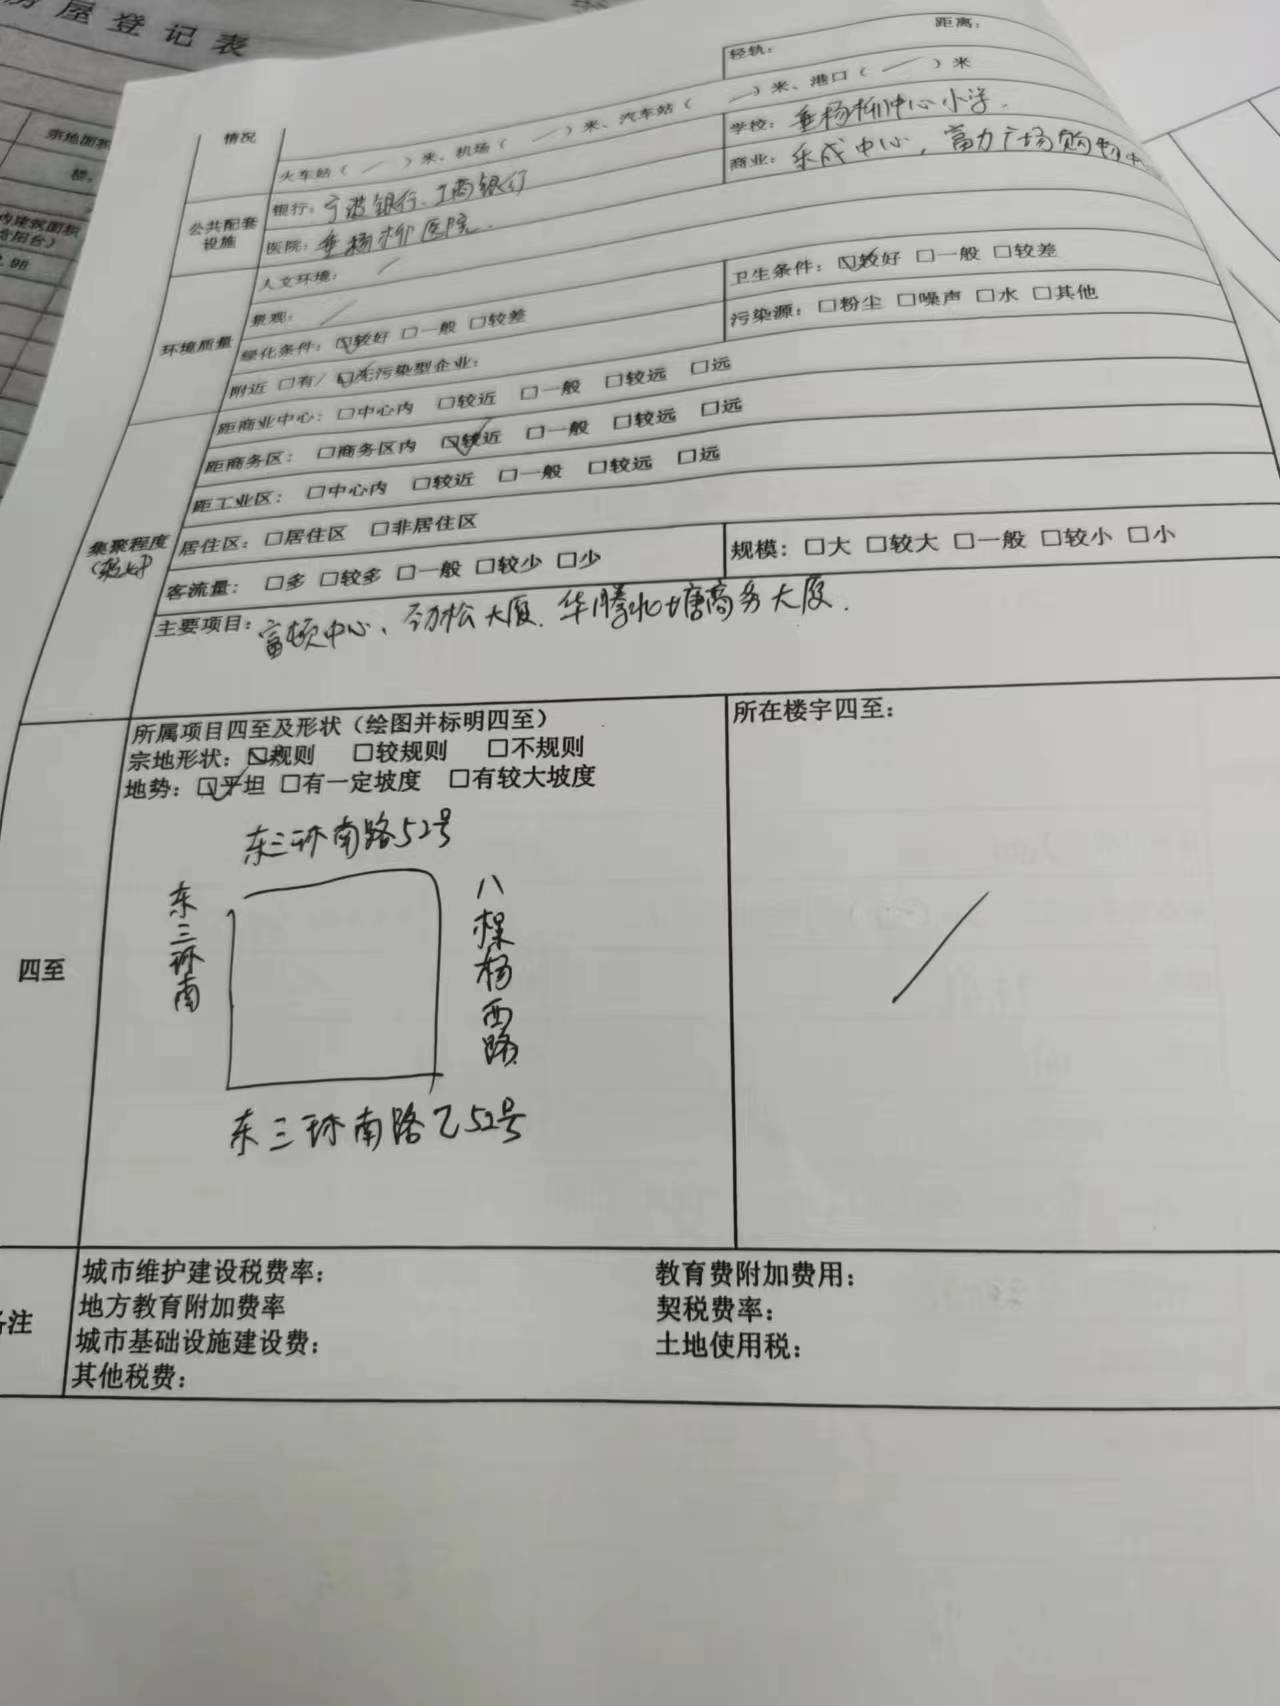 房屋登记表
宗地面积
轻轨： 距离：
情况
火车站（ ）米、机场（ ）米、汽车站（ ）米、港口（ ）米
公共配套设施
银行：宁波银行、工商银行 学校：垂杨柳中心小学.
医院：垂杨柳医院. 商业：乐成中心，富力广场购物中
环境质量
人文环境： 卫生条件：☑较好 □一般 □较差
景观： 污染源：□粉尘 □噪声 □水 □其他
绿化条件：☑较好 □一般 □较差
附近 □有/ ☑无污染型企业：
集聚程度
（较好）
距商业中心：□中心内 □较近 □一般 □较远 □远
距商务区： □商务区内 ☑较近 □一般 □较远 □远
距工业区： □中心内 □较近 □一般 □较远 □远
居住区：□居住区 □非居住区
客流量： □多 □较多 □一般 □较少 □少 规模：□大 □较大 □一般 □较小 □小
主要项目：富顿中心、劲松大厦、华腾北塘商务大厦.
四至
所属项目四至及形状（绘图并标明四至） 所在楼宇四至：
宗地形状：☑规则 □较规则 □不规则
地势：☑平坦 □有一定坡度 □有较大坡度
东三环南路52号
东三环南
八棵杨西路
东三环南路乙52号
备注
城市维护建设税费率： 教育费附加费用：
地方教育附加费率 契税费率：
城市基础设施建设费： 土地使用税：
其他税费：